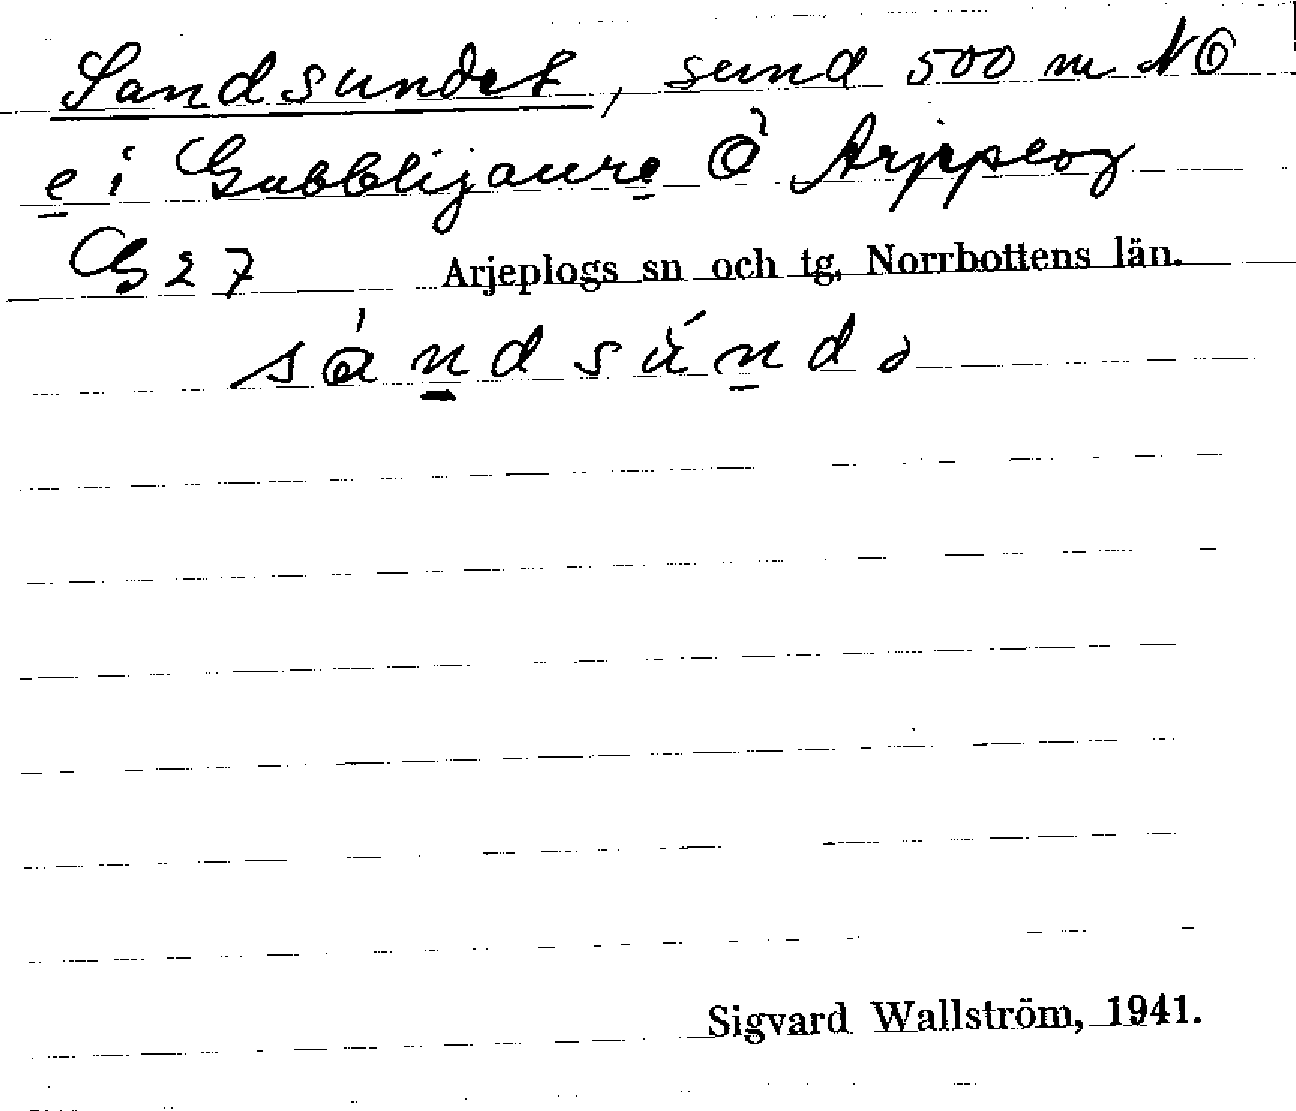 Sandsundet, sund 500 m NO
e i Gubblijaure Ö Arjeplog
G 27 Arjeplogs sn och tg, Norrbottens län.
sándsúndə
Sigvard Wallström, 1941.